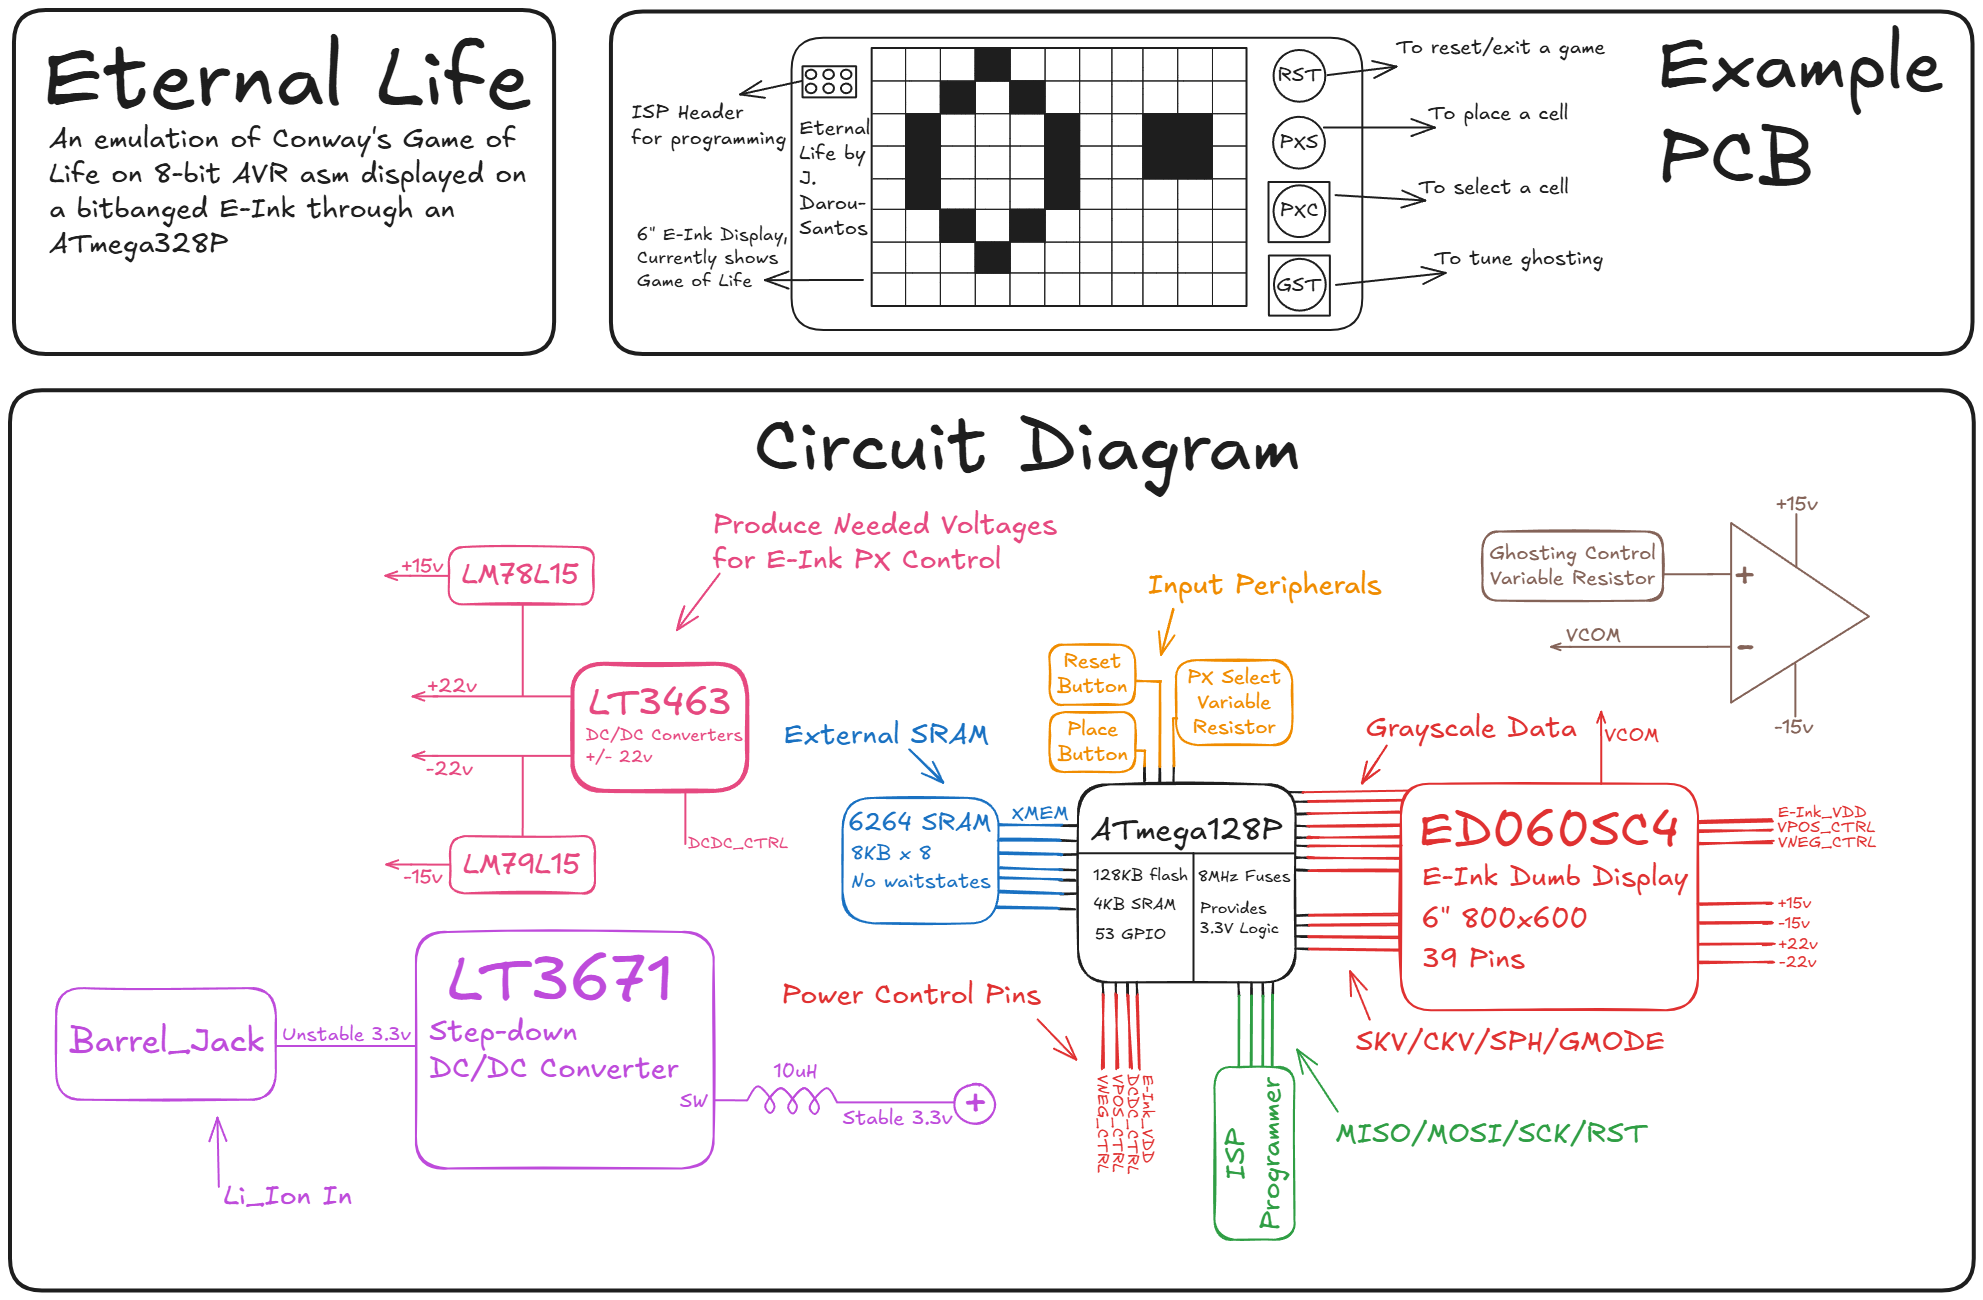 Eternal Life
An emulation of Conway's Game of
Life on 8-bit AVR asm displayed on
a bitbanged E-Ink through an
ATmega328P
Example
PCB
ISP Header
for programming
6" E-Ink Display,
Currently shows
Game of Life
Eternal
Life by
J.
Darou-
Santos
RST
PXS
PXC
GST
To reset/exit a game
To place a cell
To select a cell
To tune ghosting
Circuit Diagram
Produce Needed Voltages
for E-Ink PX Control
+15v
LM78L15
+22v
-22v
LT3463
DC/DC Converters
+/- 22v
DCDC_CTRL
-15v
LM79L15
Barrel_Jack
Unstable 3.3v
Li_Ion In
LT3671
Step-down
DC/DC Converter
SW
10uH
Stable 3.3v
+
External SRAM
6264 SRAM
8KB x 8
No waitstates
XMEM
Input Peripherals
Reset
Button
Place
Button
PX Select
Variable
Resistor
ATmega128P
128KB flash
4KB SRAM
53 GPIO
8MHz Fuses
Provides
3.3V Logic
Power Control Pins
VNEG_CTRL
VPOS_CTRL
DCDC_CTRL
E-Ink_VDD
ISP
Programmer
MISO/MOSI/SCK/RST
Grayscale Data
SKV/CKV/SPH/GMODE
VCOM
ED060SC4
E-Ink Dumb Display
6" 800x600
39 Pins
E-Ink_VDD
VPOS_CTRL
VNEG_CTRL
+15v
-15v
+22v
-22v
Ghosting Control
Variable Resistor
VCOM
+15v
+
-
-15v